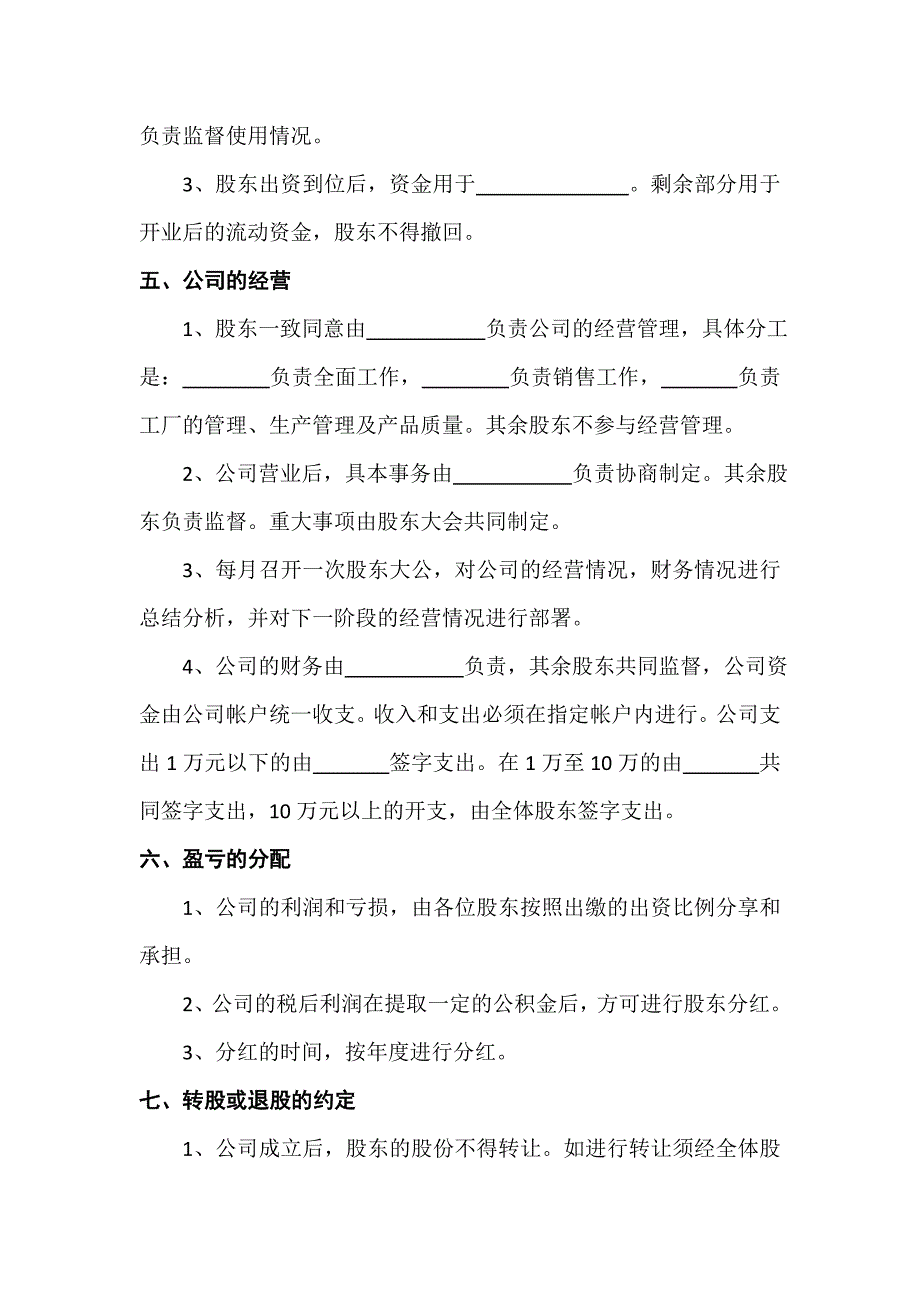 负责监督使用情况。
3、股东出资到位后，资金用于______________。剩余部分用于
开业后的流动资金，股东不得撤回。
五、公司的经营
1、股东一致同意由___________负责公司的经营管理，具体分工
是：________负责全面工作，________负责销售工作，_______负责
工厂的管理、生产管理及产品质量。其余股东不参与经营管理。
2、公司营业后，具本事务由___________负责协商制定。其余股
东负责监督。重大事项由股东大会共同制定。
3、每月召开一次股东大公，对公司的经营情况，财务情况进行
总结分析，并对下一阶段的经营情况进行部署。
4、公司的财务由___________负责，其余股东共同监督，公司资
金由公司帐户统一收支。收入和支出必须在指定帐户内进行。公司支
出 1 万元以下的由_______签字支出。在 1 万至 10 万的由_______共
同签字支出，10 万元以上的开支，由全体股东签字支出。
六、盈亏的分配
1、公司的利润和亏损，由各位股东按照出缴的出资比例分享和
承担。
2、公司的税后利润在提取一定的公积金后，方可进行股东分红。
3、分红的时间，按年度进行分红。
七、转股或退股的约定
1、公司成立后，股东的股份不得转让。如进行转让须经全体股